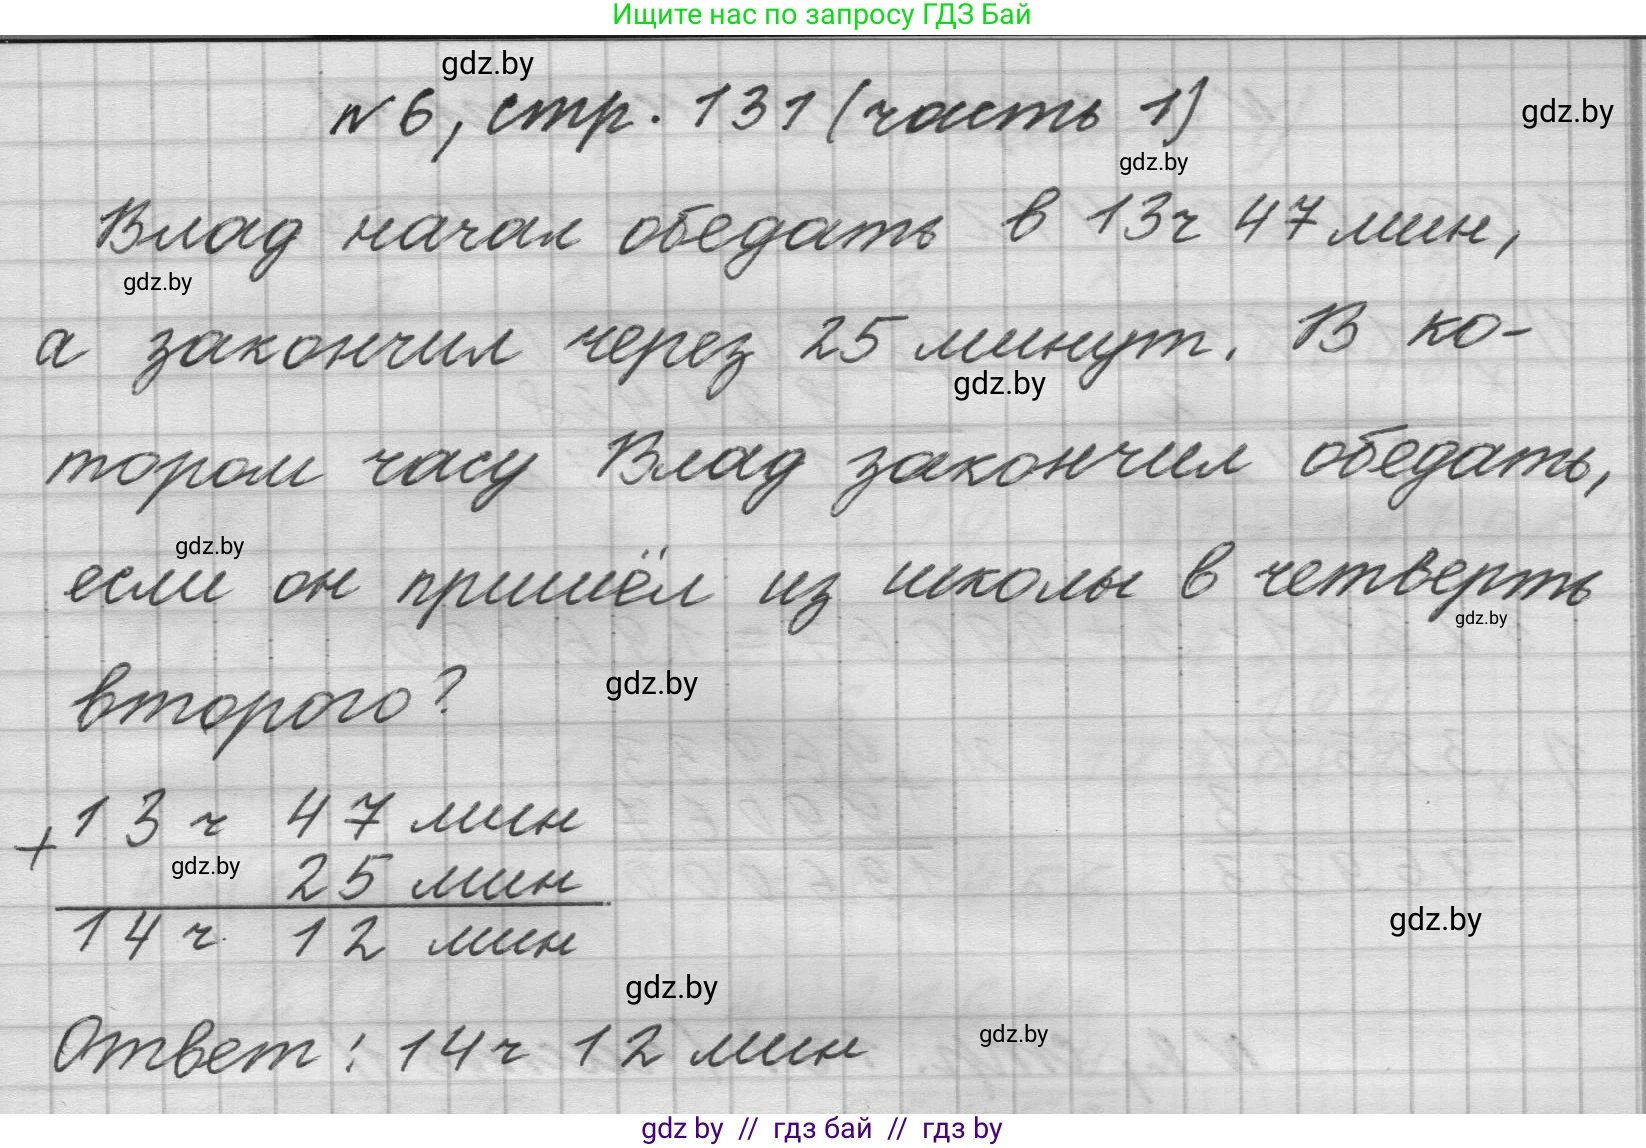 Ищите нас по запросу ГДЗ Бай
gdz.by
№6, стр. 131 (часть 1)
gdz.by
gdz.by
Влад начал обедать в 13 ч 47 мин,
gdz.by
а закончил через 25 минут. В ко-
gdz.by
тором часу Влад закончил обедать,
gdz.by
если он пришёл из школы в четверть
gdz.by
второго?
gdz.by
+ 13 ч 47 мин
gdz.by 25 мин
14 ч 12 мин
gdz.by
gdz.by
Ответ: 14 ч 12 мин
gdz.by
gdz by // гдз бай // гдз by